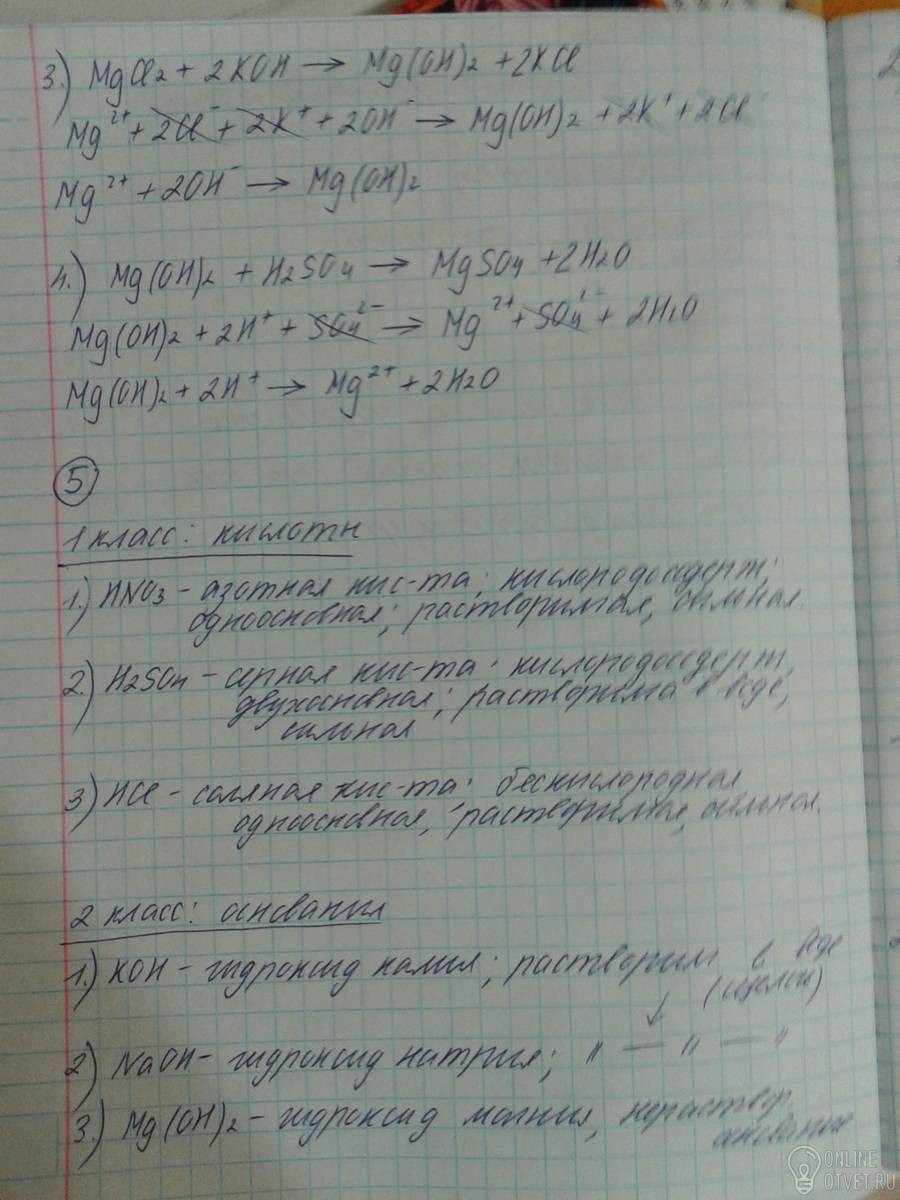 3.) MgCl₂ + 2KOH → Mg(OH)₂ + 2KCl
Mg²⁺ + 2Cl⁻ + 2K⁺ + 2OH⁻ → Mg(OH)₂ + 2K⁺ + 2Cl⁻
Mg²⁺ + 2OH⁻ → Mg(OH)₂
4.) Mg(OH)₂ + H₂SO₄ → MgSO₄ + 2H₂O
Mg(OH)₂ + 2H⁺ + SO₄²⁻ → Mg²⁺ + SO₄²⁻ + 2H₂O
Mg(OH)₂ + 2H⁺ → Mg²⁺ + 2H₂O
5
1 класс: кислоты
1.) HNO₃ – азотная кис-та; кислородосодерж;
одноосновная; растворимая, сильная.
2.) H₂SO₄ – серная кис-та; кислородосодерж,
двухосновная; растворима в воде,
сильная
3) HCl – соляная кис-та; бескислородная
одноосновная, растворимая, сильная.
2 класс: основания
1.) KOH – гидроксид калия; растворим в воде
(щелочь)
2) NaOH – гидроксид натрия; " — " — "
3.) Mg(OH)₂ – гидроксид магния, нераствор.
основание
ONLINE
OTVET.RU